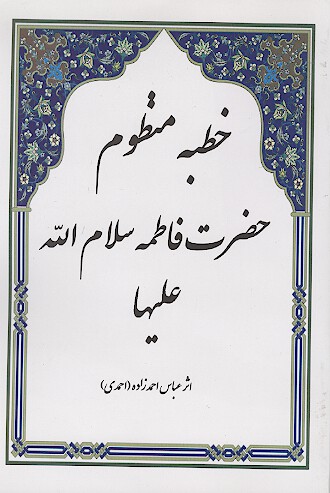 خطبه منظوم
حضرت فاطمه سلام الله
علیها
اثر عباس احمدزاده (احمدی)